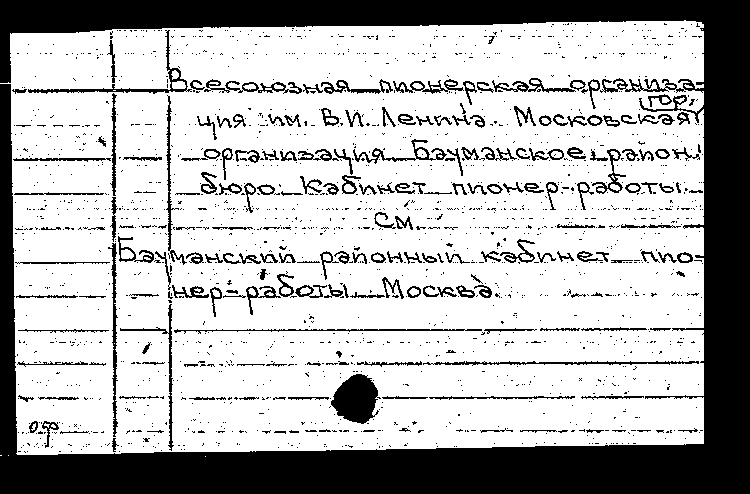 Всесоюзная пионерская организа-
гор.
ция им. В.И. Ленина. Московская
организация. Бауманское район.
бюро. Кабинет пионер-работы.
См.
Бауманский районный кабинет пио-
нер-работы. Москва.